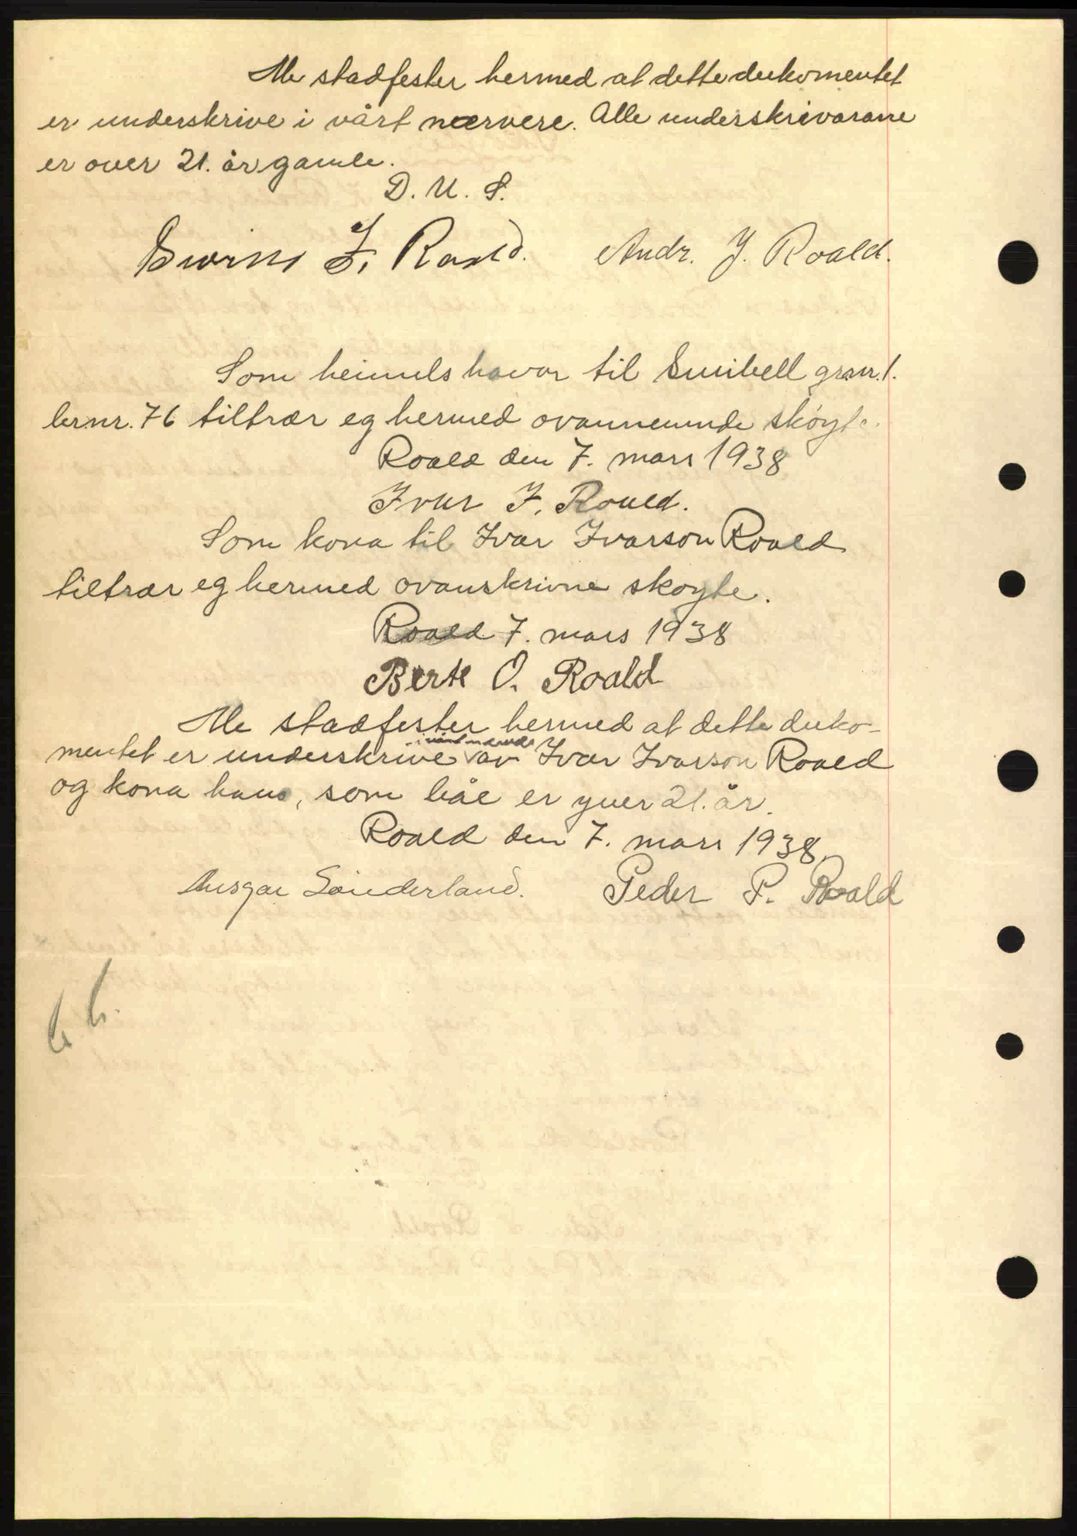 Me stadfester hermed at dette dukomentet
er underskrive i vårt nærvere. Alle underskrivarane
er over 21. år gamle.
D. U. S.
J. Roald. Andr. J. Roald.
Som heimelshavar til Snibell grsnr. 1.
brnr. 76 tiltrær eg hermed ovannemnde skøyte.
Roald den 7. mars 1938
Ivar I. Roald.
Som kona til Ivar Ivarson Roald
tiltrær eg hermed ovanskrivne skøyte.
Roald 7. mars 1938
Berte O. Roald
Me stadfester hermed at dette duko-
i vårt nærvere
mentet er underskrive av Ivar Ivarson Roald
og kona hans, som båe er yver 21. år.
Roald den 7. mars 1938.
Ansgar Sønderland. Peder P. Roald